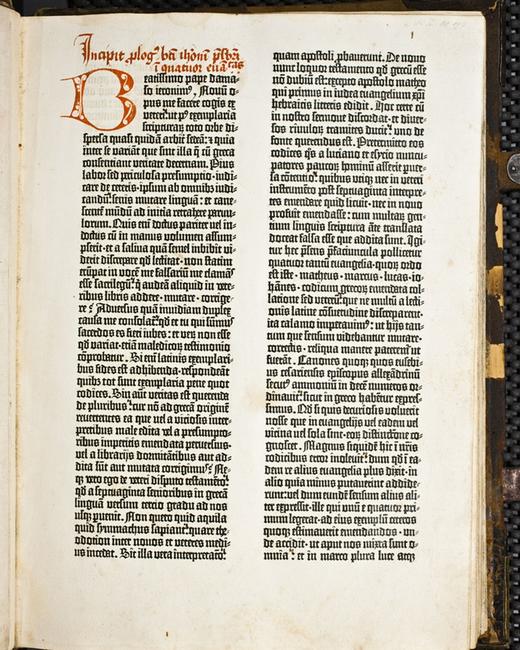 Incipit ꝓlog⁹ bti ihōnī pſbrī
ī quatuor euā
Beatiſſimo pape dama-
ſo ieronim⁹. Nouū o-
pus me facere cogis ex
veteri: ut poſt exemplaria
ſcripturaꝝ toto orbe di-
ſperſa quaſi quidā arbiter ſedeā: ⁊ quia
inter ſe variāt que ſint illa q̄ cū greca
conſentiant veritate decernam. Pius
labor ſed ꝑiculoſa preſumptio: iudi-
care de ceteris: ipſum ab omnibꝫ iudi-
candū: ſenis mutare linguā: et cane-
ſcentē mūdū ad inicia retrahere paruu-
lorum. Quis enī doctus pariter vel in-
doctus cū in manus volumen aſſum-
pſerit: et a ſaliua quā ſemel imbibit vi-
derit diſcrepare qd̓ lectitat: non ſtatim
erūpat in vocē me falſariū me clamās
eſſe ſacrilegū: q̄ audeā aliquid in vete-
ribus libris addere · mutare · corrige-
re? Aduerſus quā inuidiam duplex
cauſa me conſolat̉: qd̓ et tu qui ſūmus
ſacerdos es fieri iubes: et verū non eſſe
qd̓ variat · etiā maledicoꝝ teſtimonio
cōprobatur. Si enī latinis exemplari-
bus fides eſt adhibenda · reſpondeāt
quibꝫ: tot ſunt exemplaria pene quot
codices. Sin autē veritas eſt querenda
de pluribus: cur nō ad grecā originē
reuertentes ea que vel a vicioſis inter-
pretibus male edita vel a preſumpto-
ribus imperitis emendata peruerſius ·
vel a librarijs dormitātibus aut ad-
dita ſūt aut mutata corrigimus? Ne-
qꝫ vero ego de veteri diſputo teſtamēto:
qd̓ a ſeptuaginta ſenioribus in grecā
linguā verſum tercio gradu ad nos
uſqꝫ ꝑuenit. Non quero quid aquila
quid ſymmachus ſapiant: quare the-
odotion inter nouos et veteres medi-
us incedat. Sit illa vera interpretatō:
quam apoſtoli ꝓbauerunt. De nouo
nunc loquor teſtamento qd̓ grecū eſſe
nō dubiū eſt: excepto apoſtolo matheo
qui primus in iudea euangeliū xp̄i
hebraicis litteris edidit. Hoc certe cū
in noſtro ſermone diſcordat · et diuer-
ſos riuuloꝝ tramites ducit: uno de
fonte querendum eſt. Pretermitto eos
codices q̄s a luciano et eſycio nuncu-
patos paucoꝝ hominū aſſerit puer-
ſa cōtentio: quibus utiqꝫ nec in veteri
inſtrumēto poſt ſeptuaginta interpre-
tes emendare quid licuit · nec in nouo
profuit emendaſſe: cum multaꝝ gen-
tium linguis ſcriptura āte tranſlata
doceat falſa eſſe que addita ſunt. Igi-
tur hec p̄ſens p̄faciuncula pollicetur
quatuor tantū euangelia · quoꝝ ordo
eſt iſte · matheus · marcus · lucas · io-
hānes · codicum grecoꝝ emendata col-
latione ſed veterū: que ne multū a lecti-
onis latine cōſuetudine diſcreparent ·
ita calamo imperauimus: ut hijs tan-
tum que ſenſum videbantur mutare ·
correctis · reliqua manere pateremur ut
fuerāt. Canones quoqꝫ quos euſebi-
us ceſarienſis epiſcopus alexādrinū
ſecutus ammoniū in decē numeros or-
dinauit: ſicut in greco habētur expreſ-
ſimus. Qd̓ ſi quis curioſus voluerit
noſſe que in euangelijs vel eadem vel
vicina vel ſola ſint · eoꝝ diſtinctōne co-
gnoſcet. Magnus ſiquidē hic ī nr̄is
codicibus error inoleuit: dum qd̓ ī ea-
dem re alius euangeliſta plus dixit · in
alio quia minus putauerint addide-
runt: vel dum eundē ſenſum alius ali-
ter expreſſit · ille qui unū e quatuor pri-
mum legerat · ad eius exemplū ceteros
quoqꝫ eſtimauerit emendandos · un-
de accidit · ut aput nos mixta ſunt o-
mnia: et in marco plura luce atqꝫ